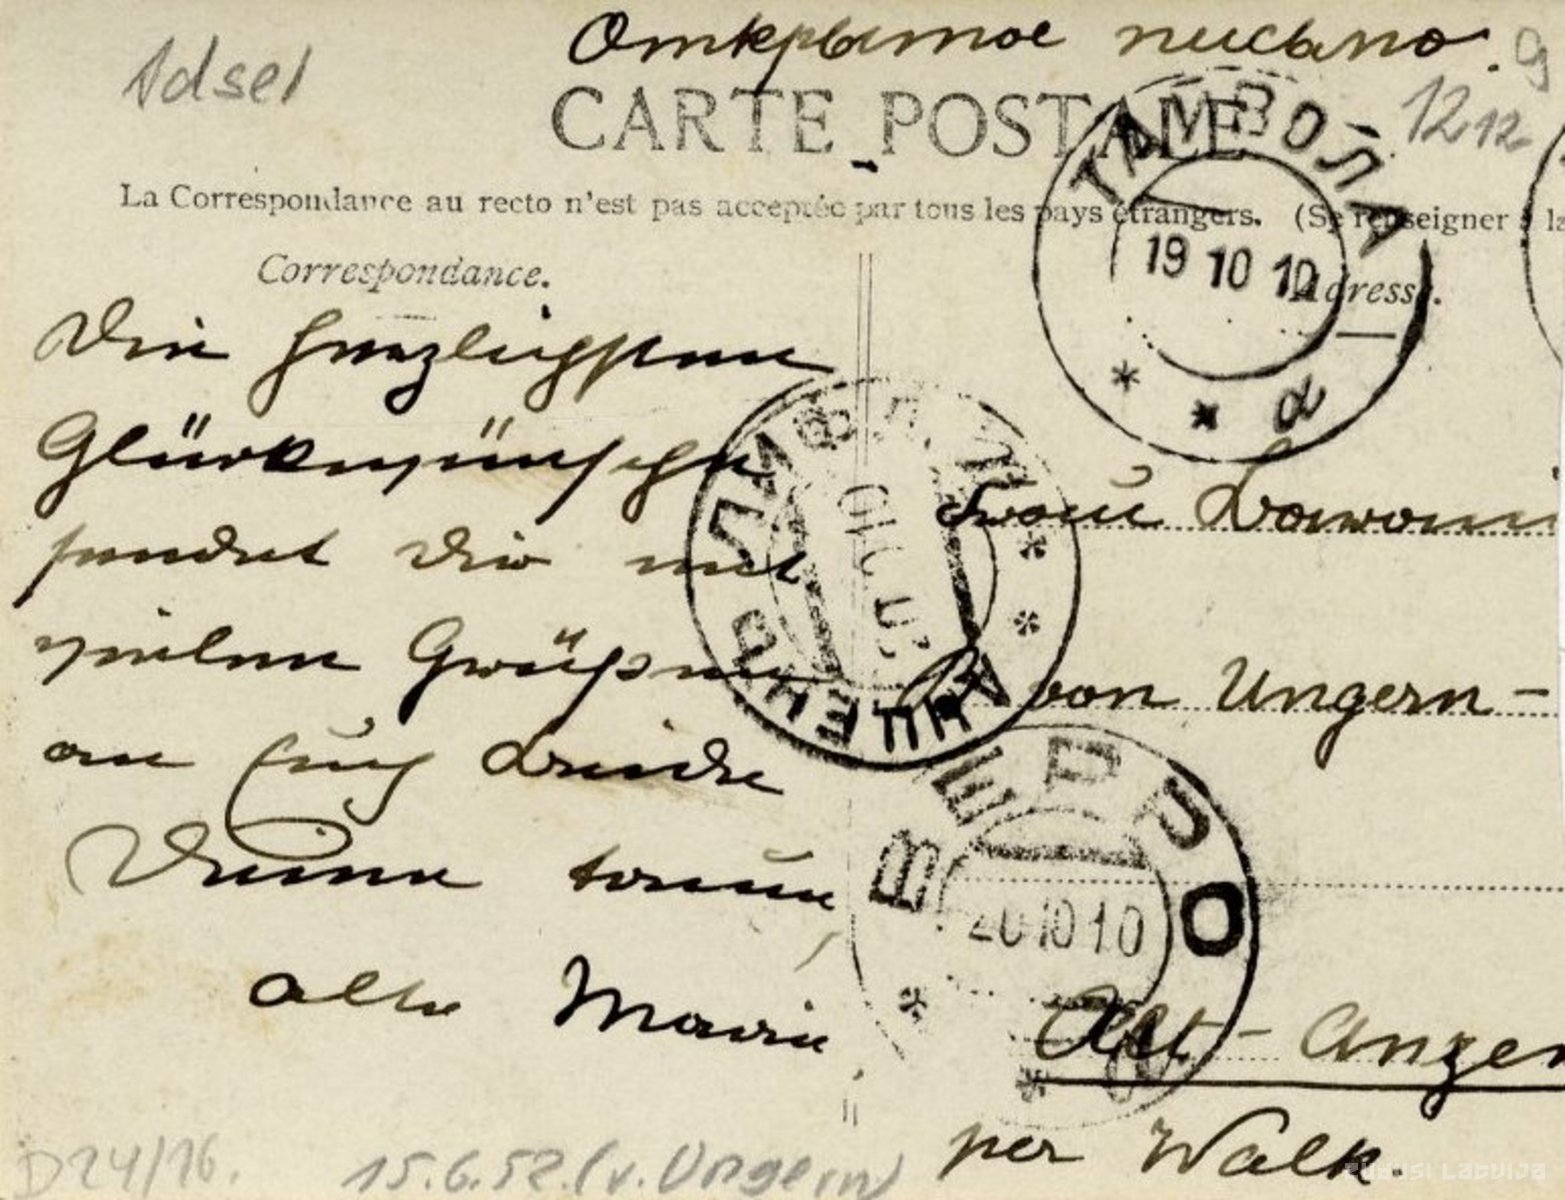 Открытое письмо. 9
Adsel
CARTE POSTALE
12.12.
La Correspondance au recto n'est pas acceptée par tous les pays étrangers. (Se renseigner à la
Correspondance.
Adresse.
ТАМВОЛА
19 10 10
α
Die herzlichsten
Glückwünsche
sendet Dir mit
vielen Grüßen
an Euch Beide
Deine treue
alte Marie
Frau Baronin
von Ungern-
Alt-Anzen
per Walk.
ВЕРРО
20 10 10
D24/16.
15.6.52. (v. Ungern)
ZUDUSI LATVIJA